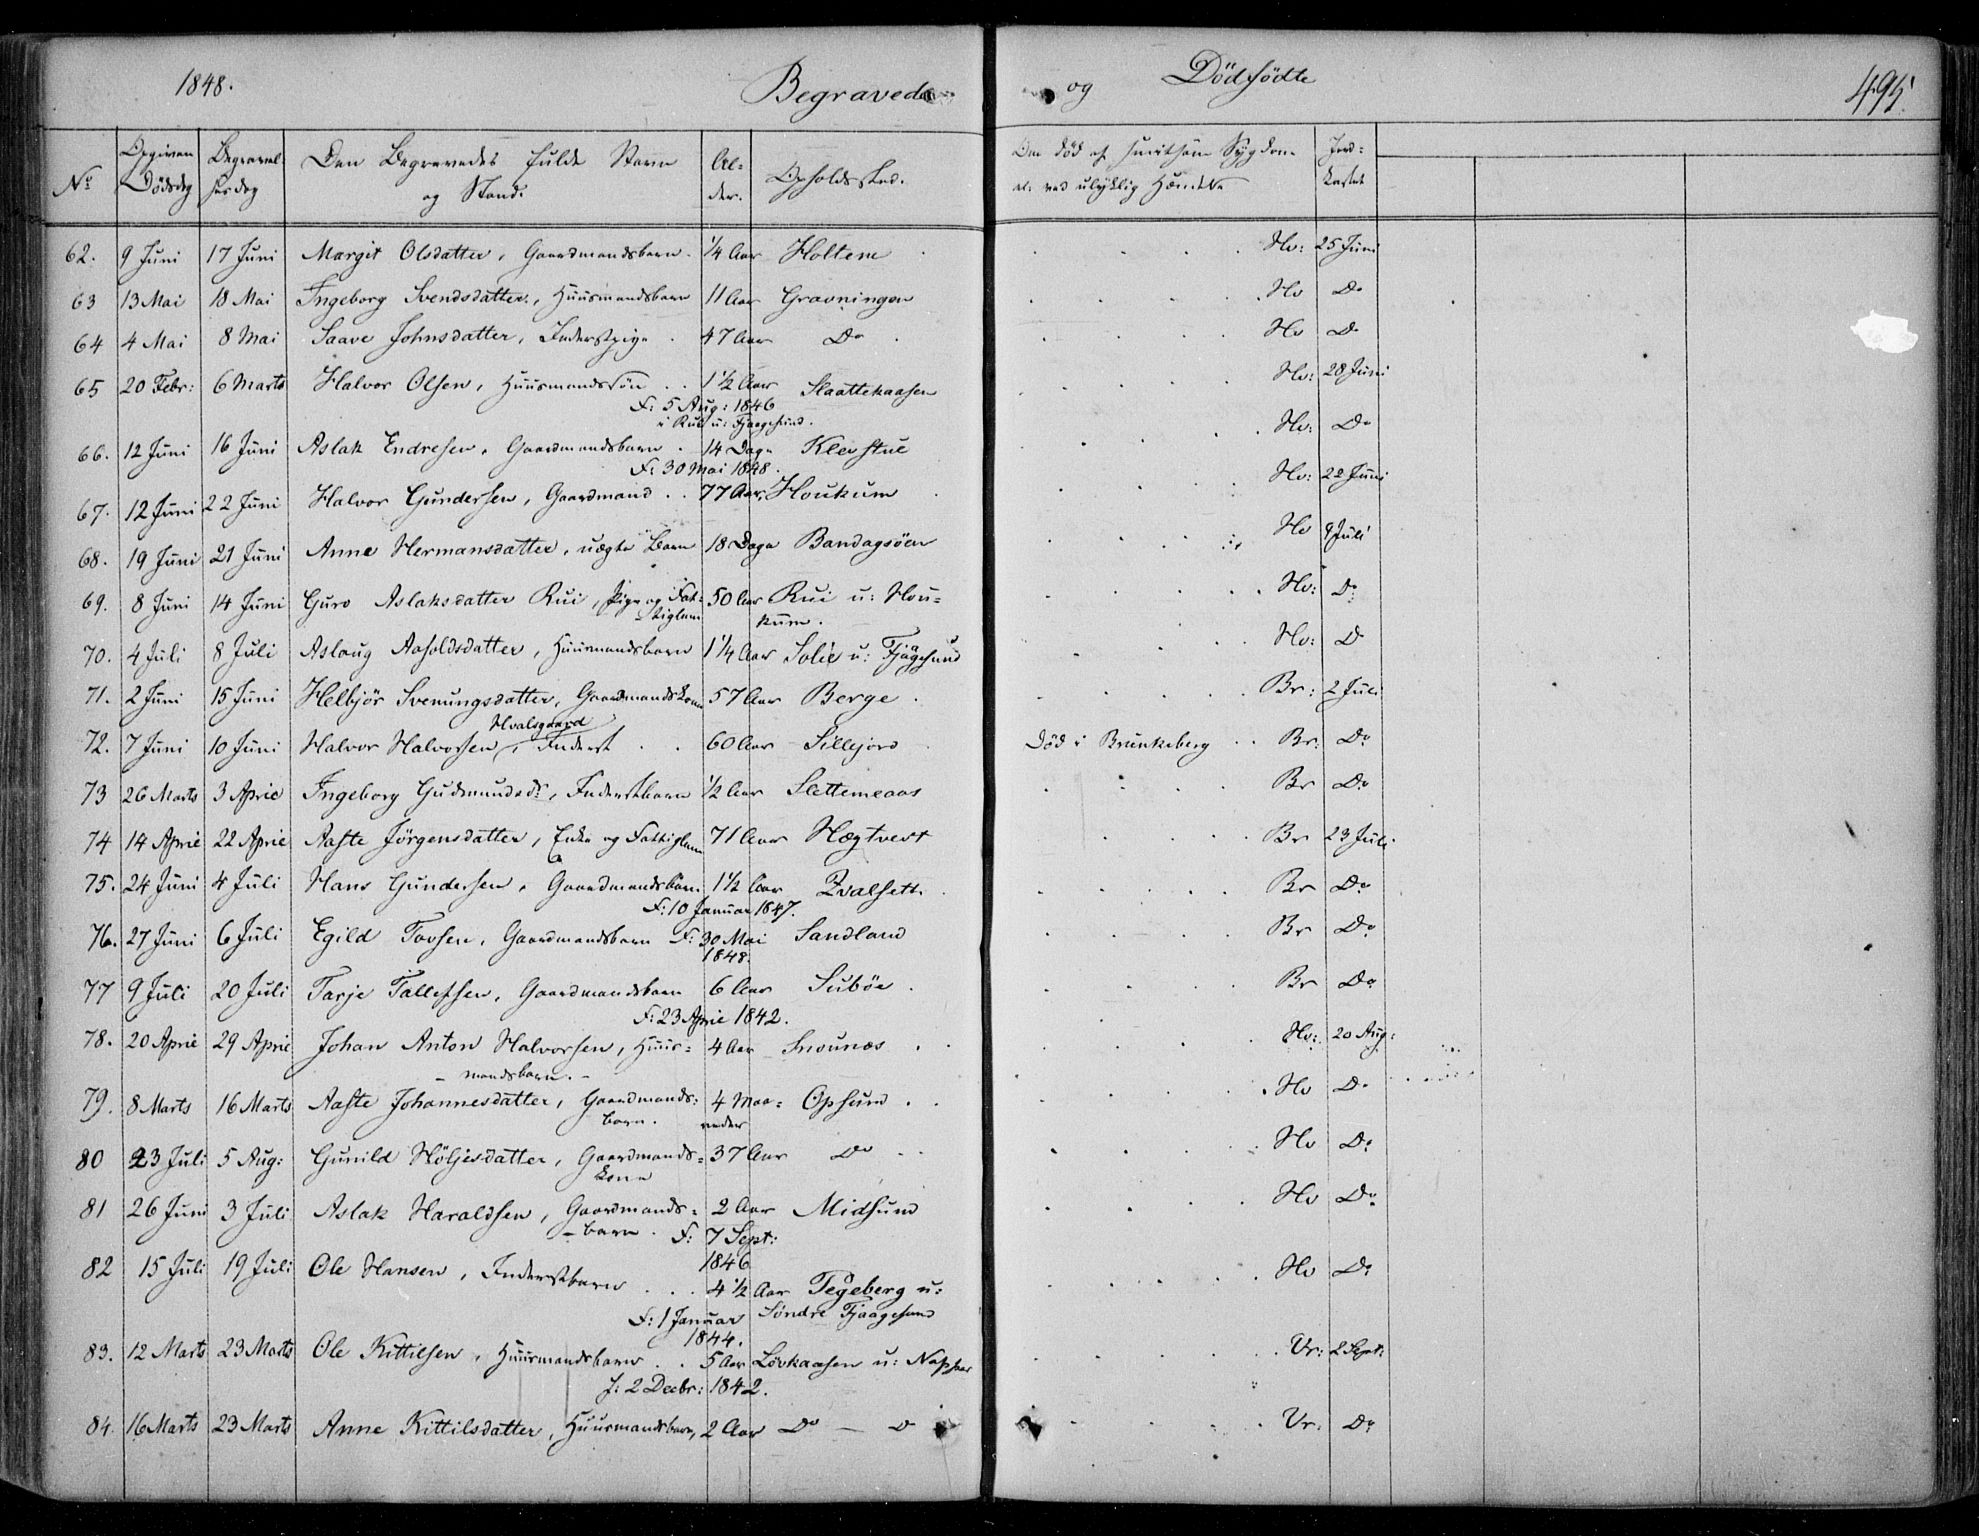 1848. Begravede og Dödfödte 495.
No Opgiven Dödsdag Begravelsesdag Den Begravedes fulde Navn og Stand. Alder. Opholdssted. Om död af smitsom Sygdom el. ved ulyklig Hændelse Jordkastet
62. 9 Juni 17 Juni Margit Olsdatter, Gaardmandsbarn. 1/4 Aar Holtene Hv: 25 Juni
63 13 Mai 18 Mai Ingeborg Svendsdatter, Huusmandsbarn 11 Aar Gravningen Hv Do
64 4 Mai 8 Mai Saave Johnsdatter, Inderstpige 47 Aar Do Hv Do
65 20 Febr: 6 Marts Halvor Olsen, Huusmandssön 1 1/2 Aar Slaattekaasen Hv: 28 Juni
F: 5 Aug: 1846
i Rui u: Fjaagesund.
66. 12 Juni 16 Juni Aslak Endresen, Gaardmandsbarn 14 Dage Klevstue Hv: Do
F: 30 Mai 1848.
67. 12 Juni 22 Juni Halvor Gundersen, Gaardmand 77 Aar, Houkum Hv: 22 Juni
68. 19 Juni 21 Juni Anne Hermansdatter, uægte Barn 18 Dage Bandagsöen Hv 9 Juli
69. 8 Juni 14 Juni Guro Aslaksdatter Rui, Pige og Fat- 50 Aar Rui u: Hou- Hv: Do
tiglem kum.
70. 4 Juli 8 Juli Aslaug Aasoldsdatter, Huusmandsbarn 1 1/4 Aar Solie u: Fjågesund Hv: D
71. 2 Juni 15 Juni Helbjör Svenungsdatter, Gaardmandskone 57 Aar Berge Br: 2 Juli
Hvalsgaard
72. 7 Juni 10 Juni Halvor Halvorsen, Inderst 60 Aar Sillejord Död i Brunkeberg Br: Do
73 26 Marts 3 April Ingeborg Gudmundsd:, Inderstbarn 1/2 Aar Slettemeaas Br Do
74 14 April 22 April Aaste Jörgensdatter, Enke og Fattiglem 71 Aar Hægtvert Br 23 Juli
75. 24 Juni 4 Juli Hans Gundersen, Gaardmandsbarn 1 1/2 Aar Qvalsett Br Do
F: 10 Januar 1847.
76. 27 Juni 6 Juli Egild Tovsen, Gaardmandsbarn F: 30 Mai Sandland Br Do
1848.
77 9 Juli 20 Juli Tarje Tallefsen, Gaardmandsbarn 6 Aar Suböe Br Do
F: 23 April 1842.
78. 20 April 29 April Johan Anton Halvorsen, Huus- 4 Aar Snounes Hv: 20 Aug:
mandsbarn.
79. 8 Marts 16 Marts Aaste Johannesdatter, Gaardmands- 4 Maa- Opsund Hv Do
barn. neder
80 23 Juli 5 Aug: Gunild Höljesdatter, Gaardmands- 37 Aar Do Hv Do
kone
81 26 Juni 3 Juli Aslak Haraldsen, Gaardmands- 2 Aar Midsund Hv Do
barn. F: 7 Sept:
1846
82 15 Juli 19 Juli Ole Hansen, Inderstbarn 4 1/2 Aar Tegeberg u: Hv Do
F: 1 Januar Söndre Fjaagesund
1844.
83. 12 Marts 23 Marts Ole Kittilsen, Huusmandsbarn 5 Aar Lövkaasen u: Napper Vr: 2 Sept:
F: 2 Decbr: 1842.
84. 16 Marts 23 Marts Anne Kittilsdatter, Huusmandsbarn, 2 Aar Do — D Vr. Do